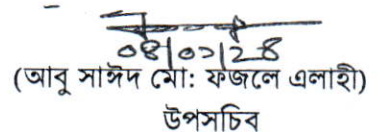 ০৪|০১|২৪
(আবু সাঈদ মো: ফজলে এলাহী)
উপসচিব